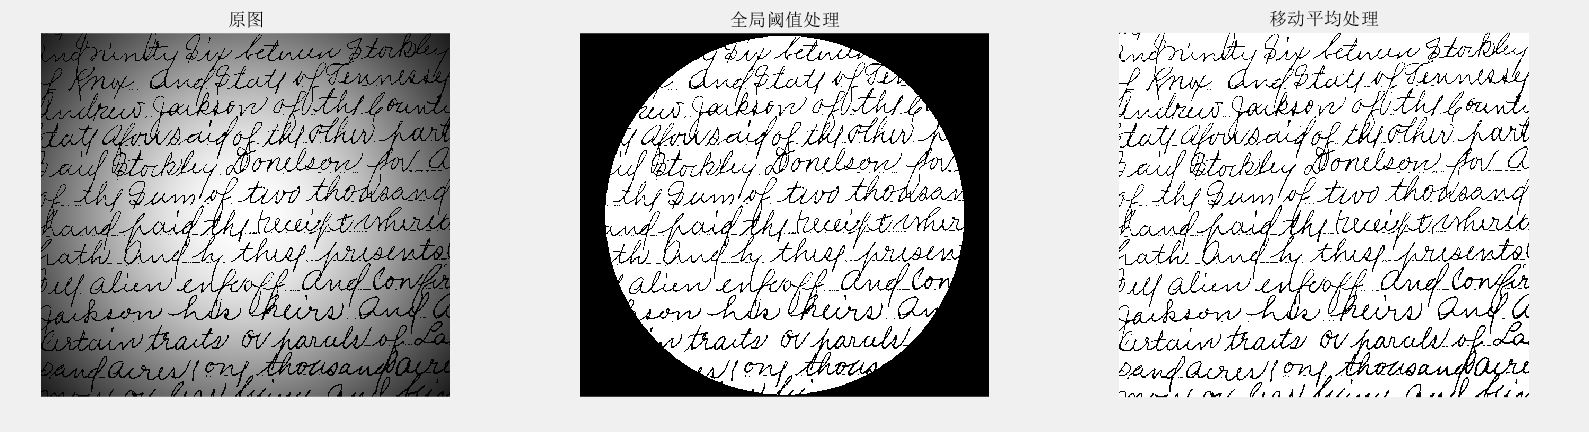 原图
ind ninity Six between Stockley
f Knox And State of Tennessey
Andrew Jackson of the County
tate aforesaid of the other part
aid Stockley Donelson for A
of the Sum of two thousand
hand paid the receipt whereo
hath And by these presents
ell alien enfeoff and Confir
Jackson his heirs And A
Certain traits or parcels of La
sand acres (one thousand acre
全局阈值处理
Six between
And State of Ten
rew Jackson of the Co
aforesaid of the other p
aid Stockley Donelson for
the Sum of two thousan
and paid the receipt where
th And by these presen
alien enfeoff and Con
son his heirs An
n traits or parcels
res (one thous
移动平均处理
ind ninity Six between Stockley
f Knox And State of Tennessey
Andrew Jackson of the County
tate aforesaid of the other part
aid Stockley Donelson for A
of the Sum of two thousand
hand paid the receipt whereo
hath And by these presents
ell alien enfeoff and Confir
Jackson his heirs And A
Certain traits or parcels of La
sand acres (one thousand acre